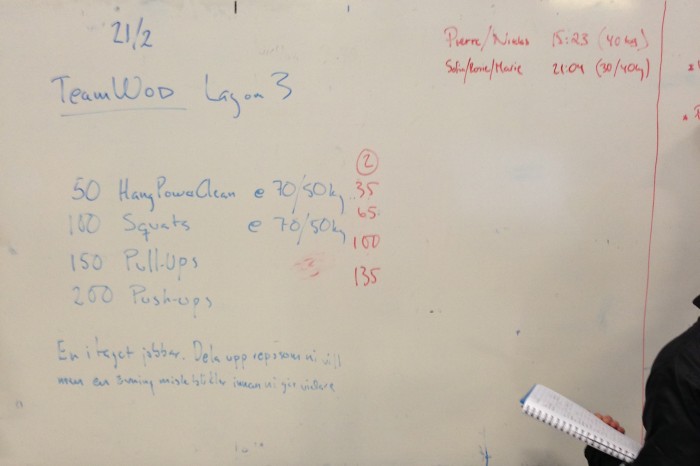 21/2
TeamWOD Lag om 3
50 HangPowerClean @ 70/50kg
100 Squats @ 70/50kg
150 Pull-Ups
200 Push-ups
En i taget jobbar. Dela upp reps som ni vill
men en övning måste bli klar innan ni går vidare
2
35
65
100
135
Pierre/Niclas 15:23 (40kg)
21:04 (30/40kg)